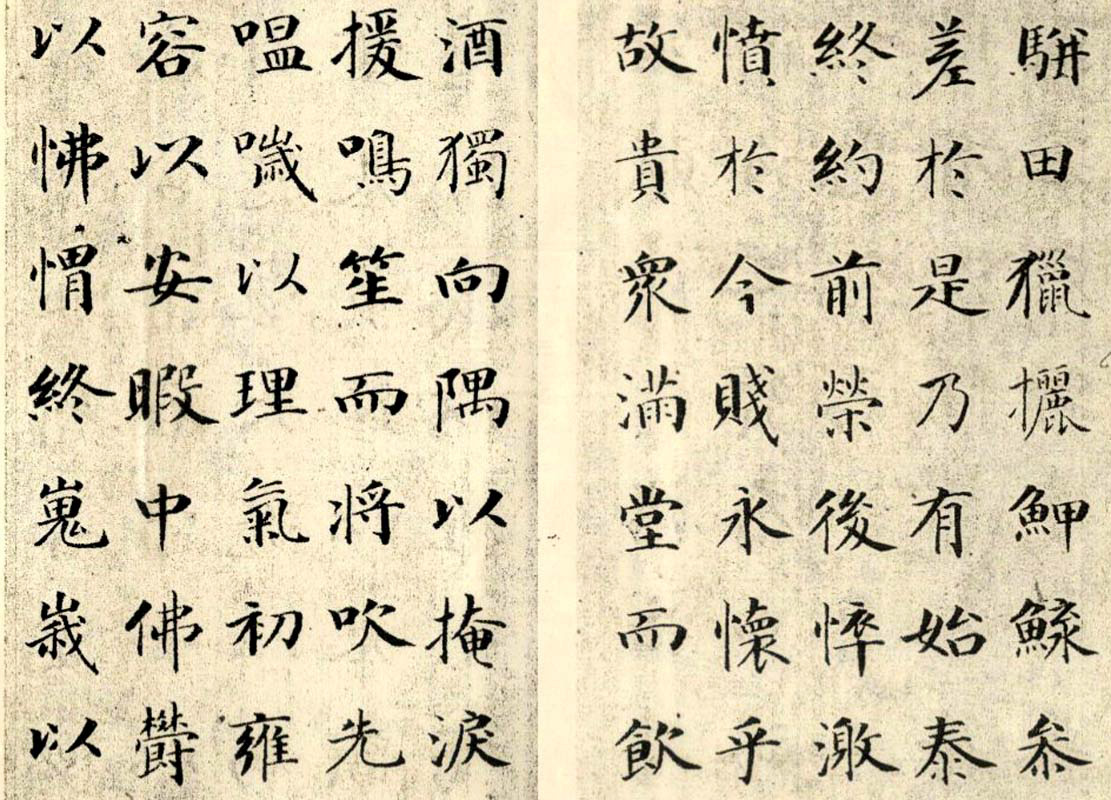 駢田獵攦魻鰈叅
差於是乃有始泰
終約前榮後悴激
憤於今賤永懷乎
故貴衆滿堂而飲
酒獨向隅以掩淚
援鳴笙而将吹先
嗢噦以理氣初雍
容以安暇中佛欝
以怫㥜終嵬峩以